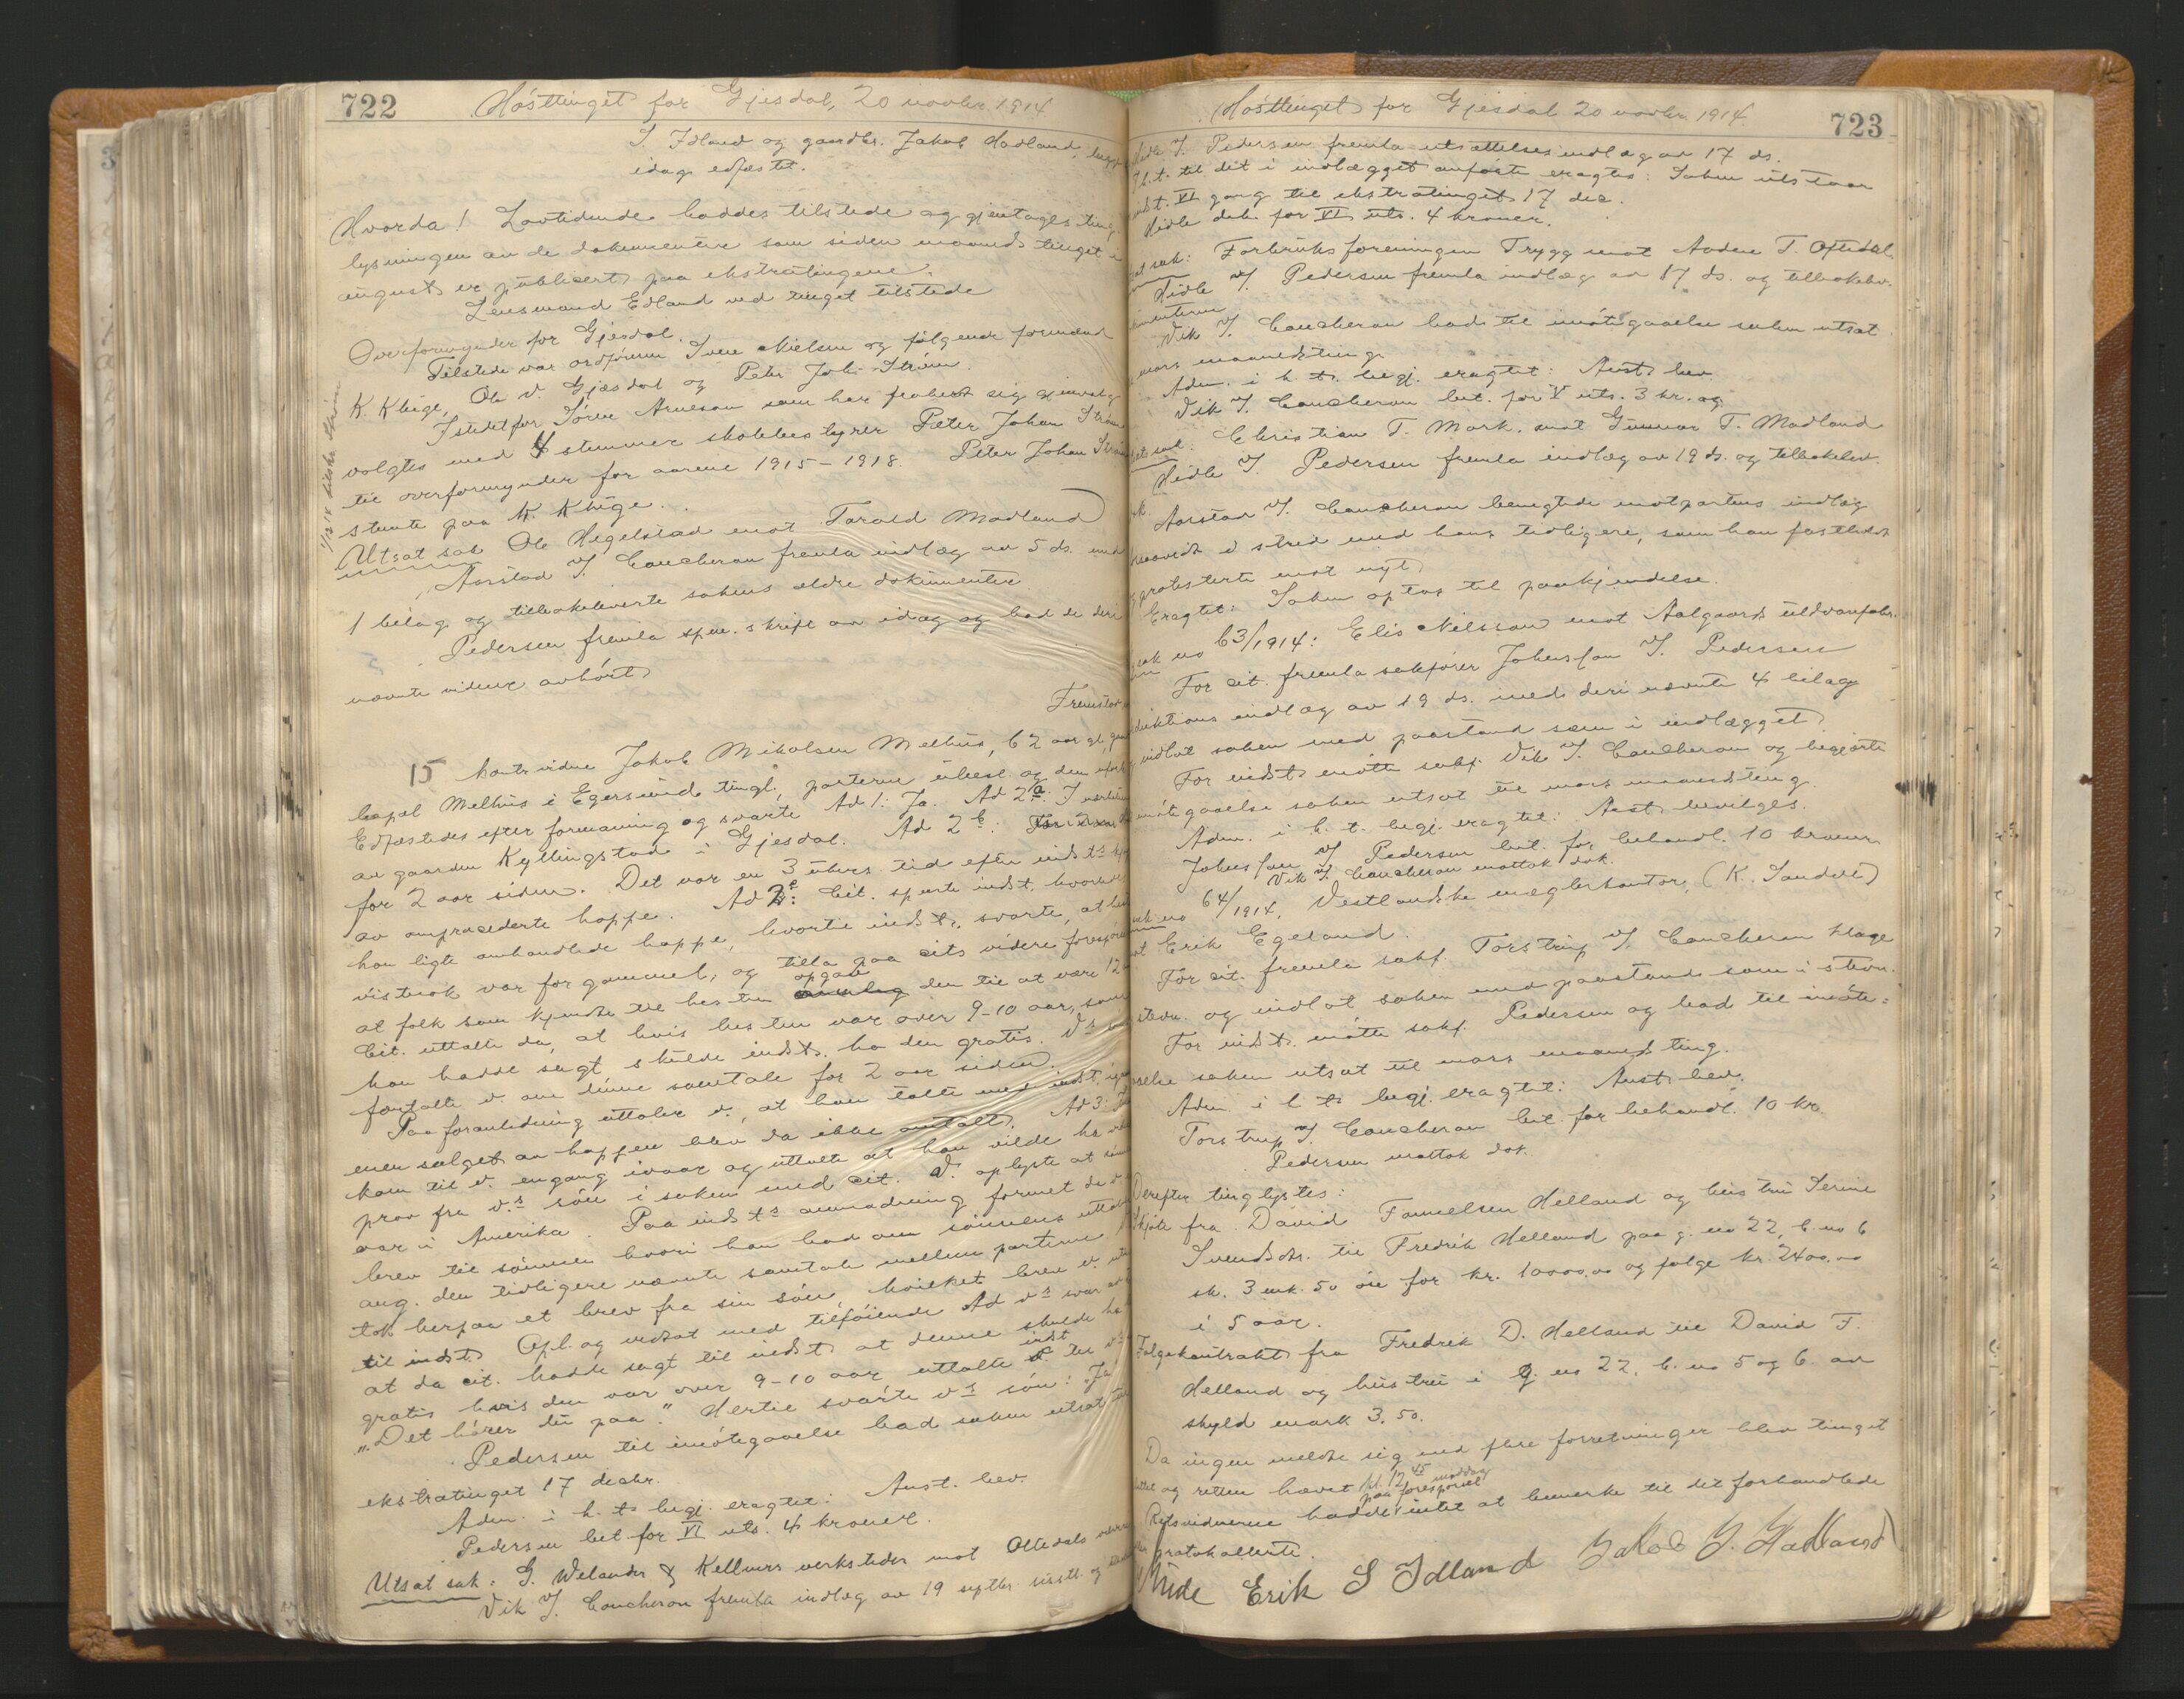 722 Høsttinget for Gjesdal, 20 novbr. 1914
I. Idland og gaardbr. Jakob Hadland, begge
idag edfæstet.
Hvorda! Lovtidende haddes tilstede og gjentages ting-
lysningen av de dokumenter som siden maanedstinget i
august er publicert paa ekstratingene.
Lensmand Edland ved tinget tilstede
Overformynder for Gjesdal.
Tilstede var ordføreren Sven Nielsen og følgende formænd
K. Kluge, Ole V. Gjesdal og Peter Joh. Strøm.
Istedetfor Søren Arneson som har frabedt sig gjenvalg
valgtes med 4 stemmer skolebestyrer Peter Johan Strøm
til overformynder for aarene 1915-1918. Peter Johan Strøm
stemte paa K. Kluge.
Utsat sak Ole Hegelstad mot Tarald Madland
Aarstad v/ Caucheron fremla indlæg av 5 ds. med
1 bilag og tilbakeleverte sakens ældre dokumenter
Pedersen fremla spm.skrift av idag og bad de deri
nævnte vidner avhørt
Fremstod
15 kontr vidne Jakob Mikalsen Melhus, 62 aar gl,
Melhus i Egersund tingl., parterne ubesl. og
Edfæstedes efter formaning og svarte Ad 1: Ja. Ad 2a:
av gaarden Kyllingstad i Gjesdal. Ad 2b:
for 2 aar siden. Det var en 3 ukers tid efter indst.s kjøp
av omprocederte hoppe. Ad 2c: Cit. spurte indst. hvorledes
han ligte omhandlede hoppe, hvortil indst. svarte, at han
vistnok var for gammel, og tilla paa cits videre forespørsel
at folk som kjendte til hesten opgav den til at være 12
Cit. uttalte da, at hvis hesten var over 9-10 aar, som
han hadde sagt, skulde indst. ha den gratis. V.s
fortalte v. om denne samtale for 2 aar siden.
Paa foranledning uttaler v., at han talte med indst. igjen
men salget av hoppen blev da ikke omtalt. Ad 3:
kom til v. engang ivaar og uttalte at han vilde ha
prov fra v.s søn i saken med cit. V. oplyste at søn
var i Amerika. Paa indst.s anmodning formet da v.
brev til sønnen hvori han bad om sønnens uttalelse
ang. den tidligere nævnte samtale mellem parterne
tok herpaa et brev fra sin søn, hvilket brev v.
til indst. Opl. og vedtat med tilføiende Ad v.s svar
at da cit. hadde sagt til indst. at denne skulde ha
gratis hvis den var over 9-10 aar uttalte indst til v.s
"Det hører du paa." Hertil svarte v.s søn: Ja
Pedersen til imøtegaaelse bad saken utsat til
ekstratinget 17 decbr.
Adm. i h. t. begj. eragtet: Anst. bev.
Pedersen bet. for VI uts. 4 kroner.
Utsat sak: G. Welander & Kellners verksteder mot Oltedals
Vik v/ Caucheron fremla indlæg av 19 septbr. sidstl. og
Høsttinget for Gjesdal 20 novbr. 1914. 723
Hidle v/ Pedersen fremla utsættelsesindlæg av 17 ds.
I h. t. til det i indlægget anførte eragtes: Saken utstaar
sidst. VI gang til ekstratinget 17 dec.
Hidle bet. for VI uts. 4 kroner.
sak: Forbruksforeningen Trygg mot Aadne T. Oftedal
Hidle v/ Pedersen fremla indlæg av 17 ds. og tilbakelev.
Vik v/ Caucheron bad til imøtegaaelse saken utsat
mars maanedsting.
Adm. i h. t. begj. eragtet: Anst. bev.
Vik v/ Caucheron bet. for V uts. 3 kr. og
sak: Christian T. Mork. mot Gunnar T. Madland
Hidle v/ Pedersen fremla indlæg av 19 ds. og tilbakelev.
Aarstad v/ Caucheron benegtede motpartens indlæg
i strid med hans tidligere, som han fastholdt
protesterte mot nyt.
Eragtet: Saken optas til paakjendelse.
sak no 63/1914: Elis Nilsson mot Aalgaard uldvarefabr.
For cit. fremla sakfører Johnsson v/ Pedersen
indlæg av 19 ds. med deri nævnte 4 bilag
indlot saken med paastand som i indlægget.
For indst. møtte sakf. Vik v/ Caucheron og begjærte
imøtegaaelse saken utsat til mars maanedsting.
Adm. i h. t. begj. eragtet: Anst. bevilges.
Johnsson v/ Pedersen bet. for behandl. 10 kroner
Vik v/ Caucheron mottok dok.
sak no 64/1914. Vestlandske mæglerkontor (K. Sandve)
mot Erik Egeland.
For cit. fremla sakf. Torstrup v/ Caucheron klage
stevn. og indlot saken med paastand som i stevn.
For indst. møtte sakf. Pedersen og bad til imøte=
saken utsat til mars maanedsting.
Adm. i h. t. begj. eragtet: Anst. bev.
Torstrup v/ Caucheron bet. for behandl. 10 kr.
Pedersen mottok dok.
Derefter tinglystes:
Skjøte fra David Helland og hustru Serine
Svendsdtr. til Fredrik Helland paa g. no 22, b. no 6
sk. 3 mk. 50 øre for kr. 10000.00 og følge kr. 2400.00
i 5 aar.
Følgekontrakt fra Fredrik D. Helland til David F.
Helland og hustru i g. no 22, b. no 5 og 6. av
skyld mark 3.50.
Da ingen meldte sig med flere forretninger blev tinget
sluttet og retten hævet kl. 12 45 middag
Retsvidnerne hadde paa forespørsel intet at bemerke til det forhandlede
protokollerte.
Erik S Idland Jakob J. Hadland